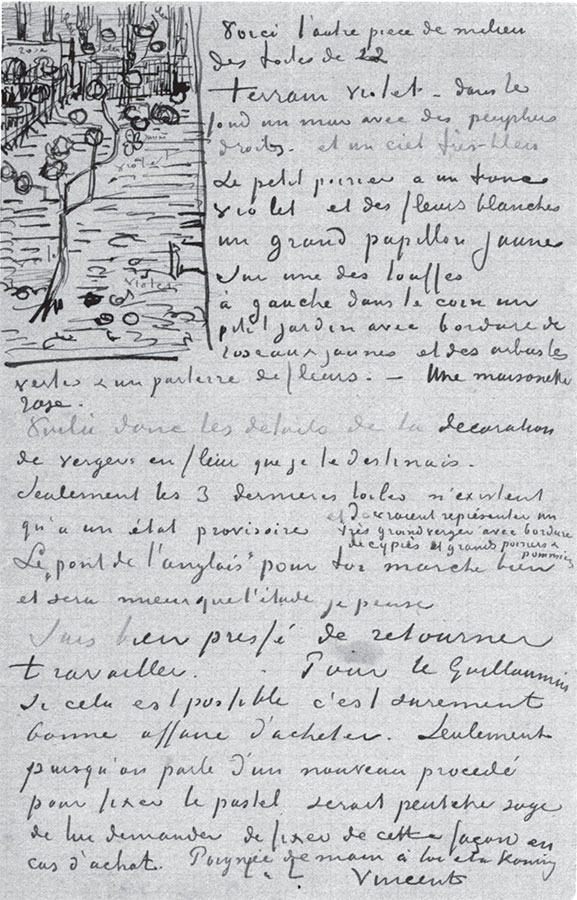 rose
violet
jaune
violet
Voici l'autre piece de milieu
des toiles de 12
terrain violet – dans le
fond un mur avec des peupliers
droits. et un ciel très bleu
Le petit poirier a un tronc
violet et des fleurs blanches
un grand papillon jaune
sur une des touffes
à gauche dans le coin un
petit jardin avec bordure de
roseaux jaunes et des arbustes
verts & un parterre de fleurs. – Une maisonette
rose.
Voilà donc les details de la decoration
de vergers en fleur que je te destinais.
Seulement les 3 dernieres toiles n'existent
qu'à un état provisoire et devraient représenter un
très grand verger avec bordure
de cyprès et grands poiriers &
pommiers
Le „pont de l'anglais” pour toi marche bien
et sera mieux que l'étude je pense
Suis bien pressé de retourner
travailler. Pour le Guillaumin
si cela est possible c'est surement
bonne affaire d'acheter. Seulement
puisqu'on parle d'un nouveau procedé
pour fixer le pastel serait peutetre sage
de lui demander de fixer de cette façon en
cas d'achat. Poignée de main à toi et à Koning
Vincent